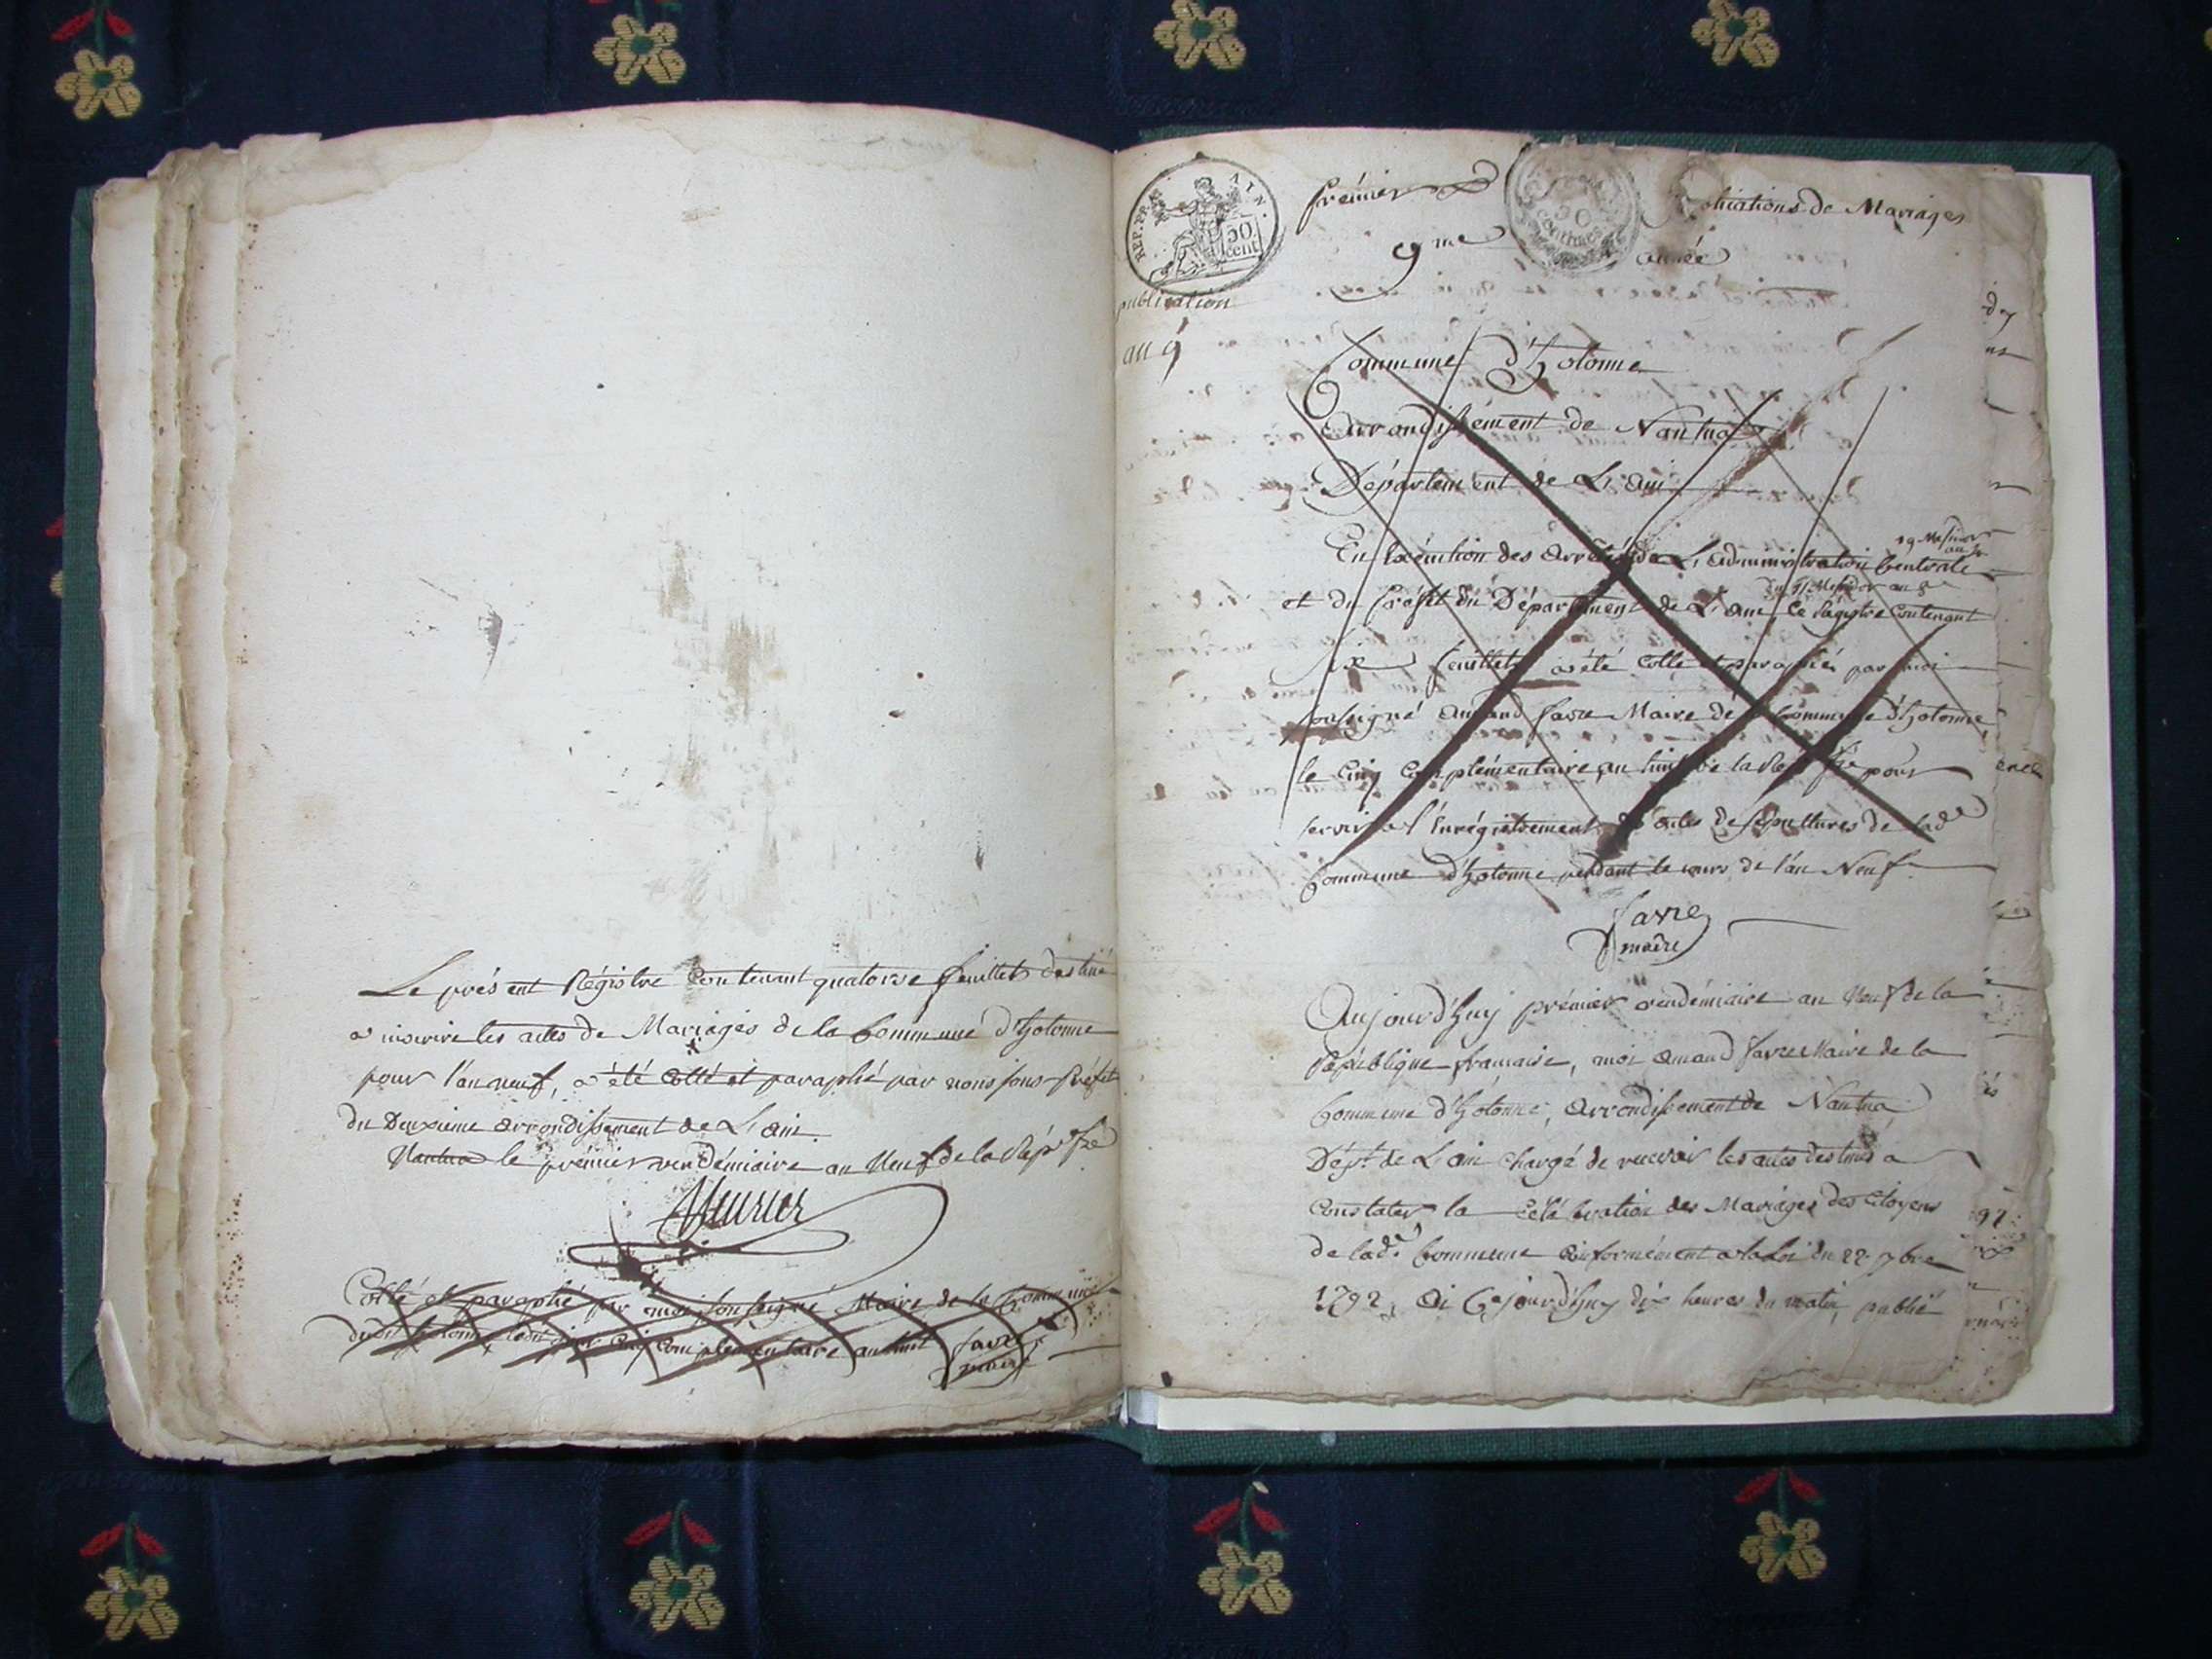 Le présent Régistre Contenant quatorse feuillets destiné
a inscrire les actes de Mariages de la Commune d'hotonne
pour l'an neuf, a été Cotté et paraphé par nous sous-Préfet
du Deuxieme arrondissement de L'ain.
Nantua le prémier vendémiaire an Neuf de la Rép. fse
Cotté et paraphé par moi soussigné Maire de la Commune
Cinq Complémentaire an huit favre
maire
REP. FRA. AIN.
50
cent
premier
50
centimes
de Mariages
9me
année
publication
an 9
Commune d'hotonne
Arrondissement de Nantua
Département de L'ain
19 Messidor
En Exécution des Arrêtés de L'administration Centrale
Messidor an 8
et du Préfet du Département de L'ain, Ce Régistre Contenant
Six feuillets a été Cotté et paraphé par moi
soussigné Amand favre Maire de la Commune d'hotonne
le Cinq Complémentaire an huit de la Rep. fse pour
servir a l'Enrégistrement des actes de sépultures de lade
Commune d'hotonne pendant le cours de l'an Neuf.
favre
maire
Aujourd'huy prémier vendémiaire an Neuf de la
République francaise, moi amand favre Maire de la
Commune d'hotonne, Arrondissement de Nantua
Dépt. de L'ain Chargé de recevoir les actes destinés a
Constater la Célébration des Mariages des Citoyens
de lade. Commune Conformément a la Loi du 22 7bre
1792, ai Cejourd'huy dix heures du matin, publié